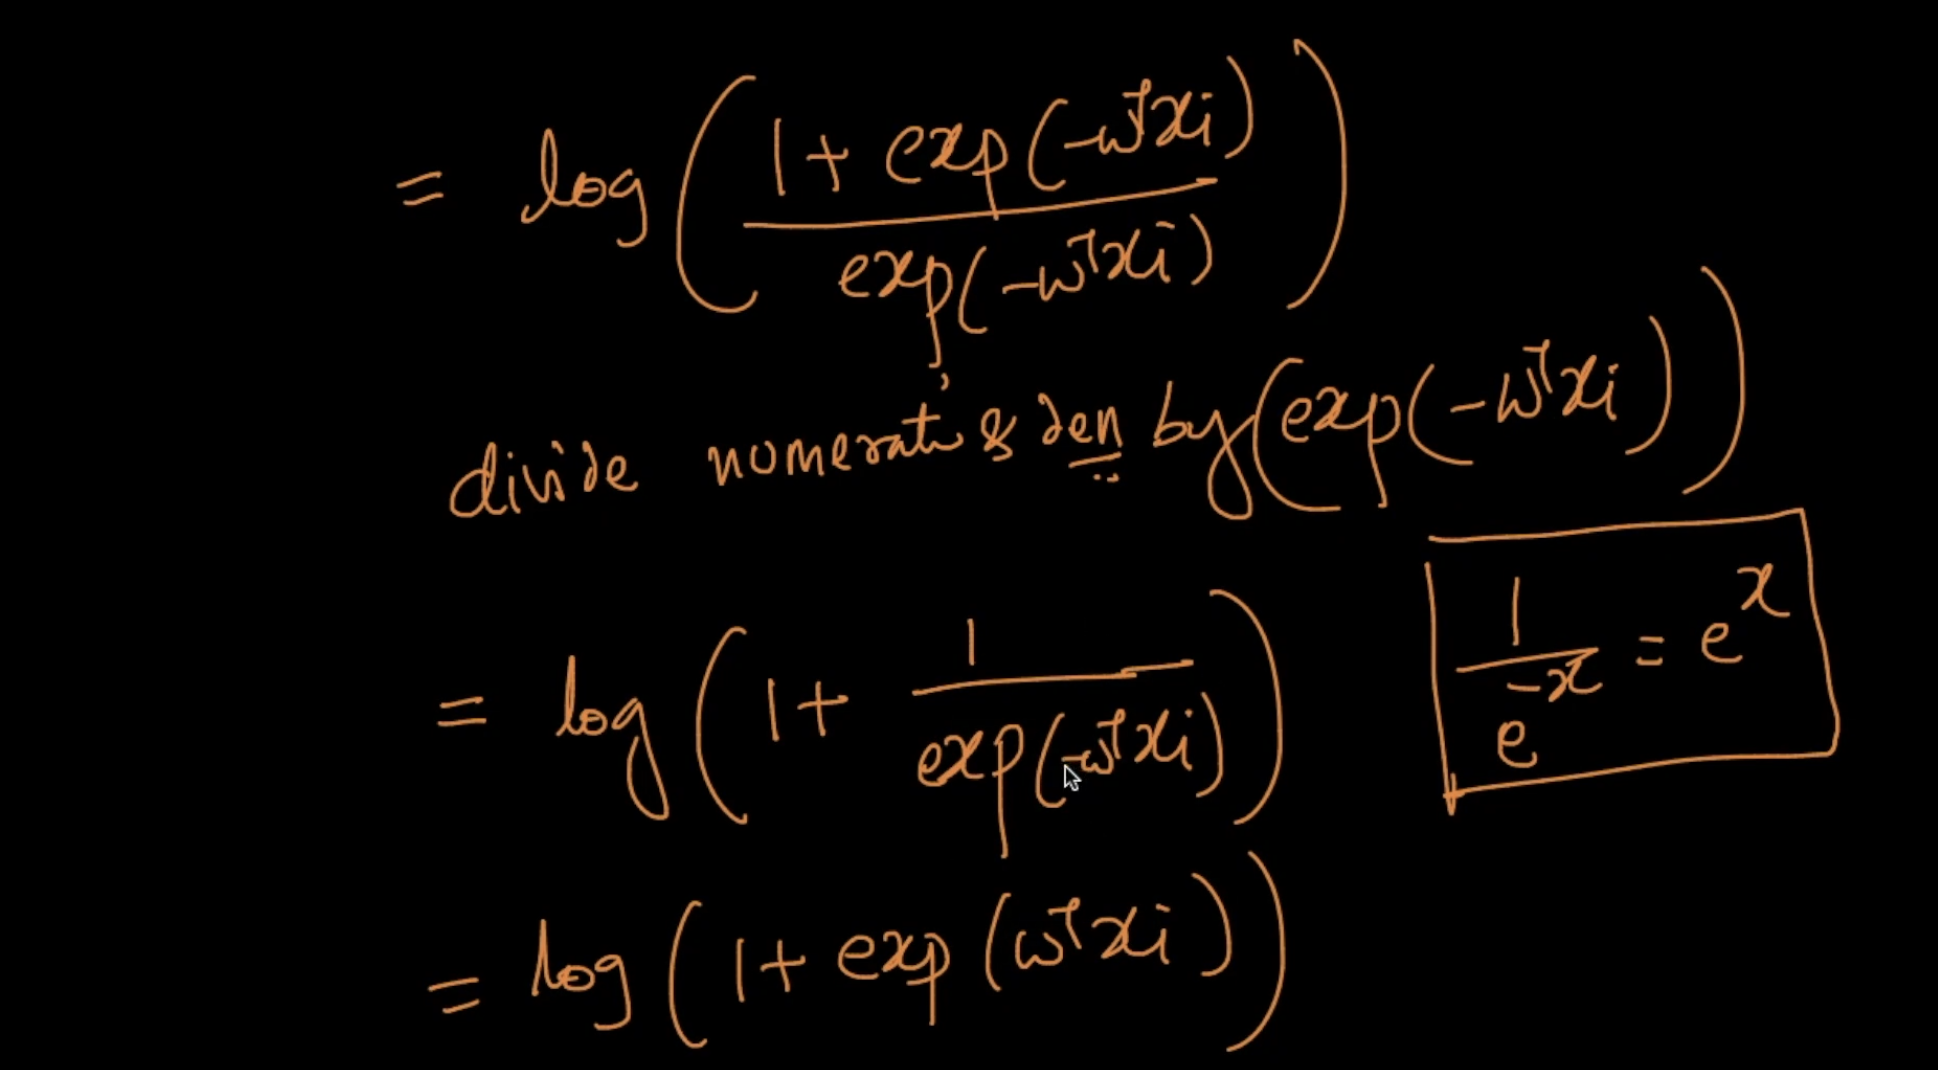 = log ( 1 + exp(-wᵀxi) / exp(-wᵀxi) )
divide numerat & den by (exp(-wᵀxi))
= log ( 1 + 1 / exp(-wᵀxi) )
1 / e^-x = e^x
= log ( 1 + exp (wᵀxi) )